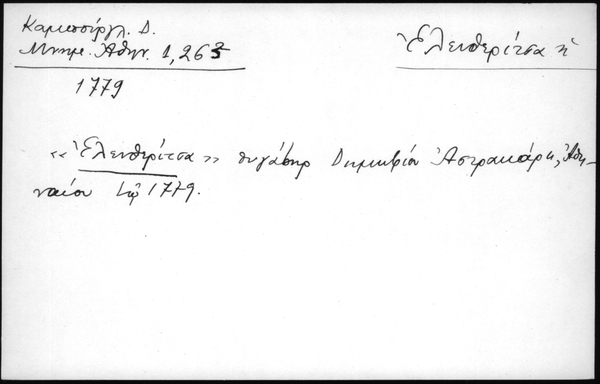 Καμπούρογλ. Δ.
Μνημ. Ἀθην. 1, 263
Ἐλευθερίτσα ἡ
1779
«Ἐλευθερίτσα» θυγάτηρ Δημητρίου Ἀστρακάρη, Ἀθη-
ναίου τῷ 1779.